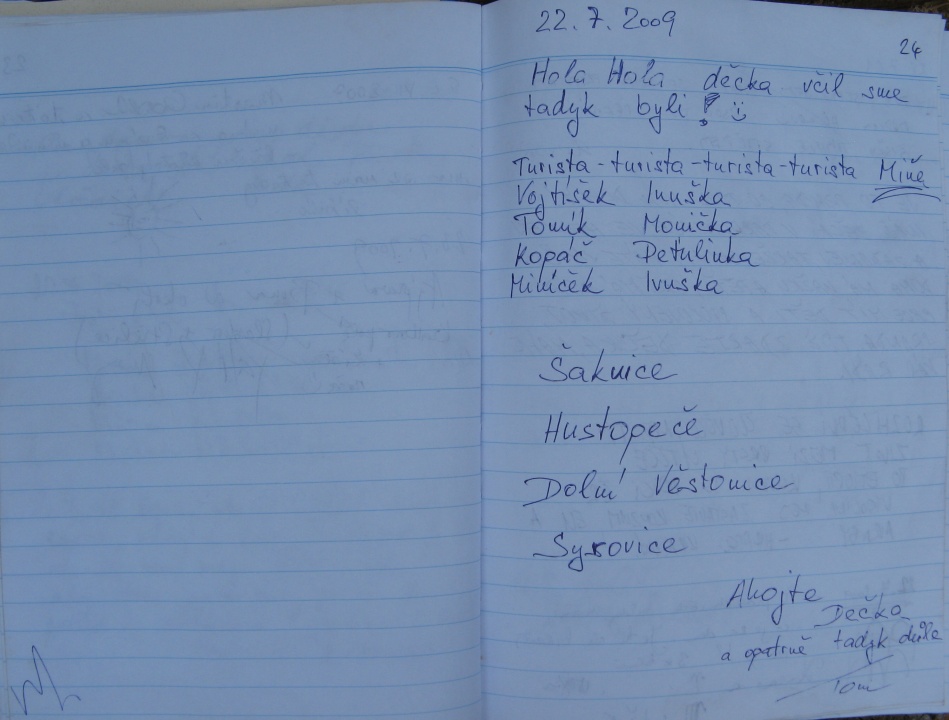 22. 7. 2009
24
Hola Hola děcka včil sme
tadyk byli!
Turista - turista - turista - turista Míňa
Vojtíšek Inuška
Tomík Monička
Kopáč Peťulinka
Milíček Ivuška
Šaknice
Hustopeče
Dolní Věstonice
Syrovice
Ahojte
Děcka
a opatrně tadyk dolle
Tom